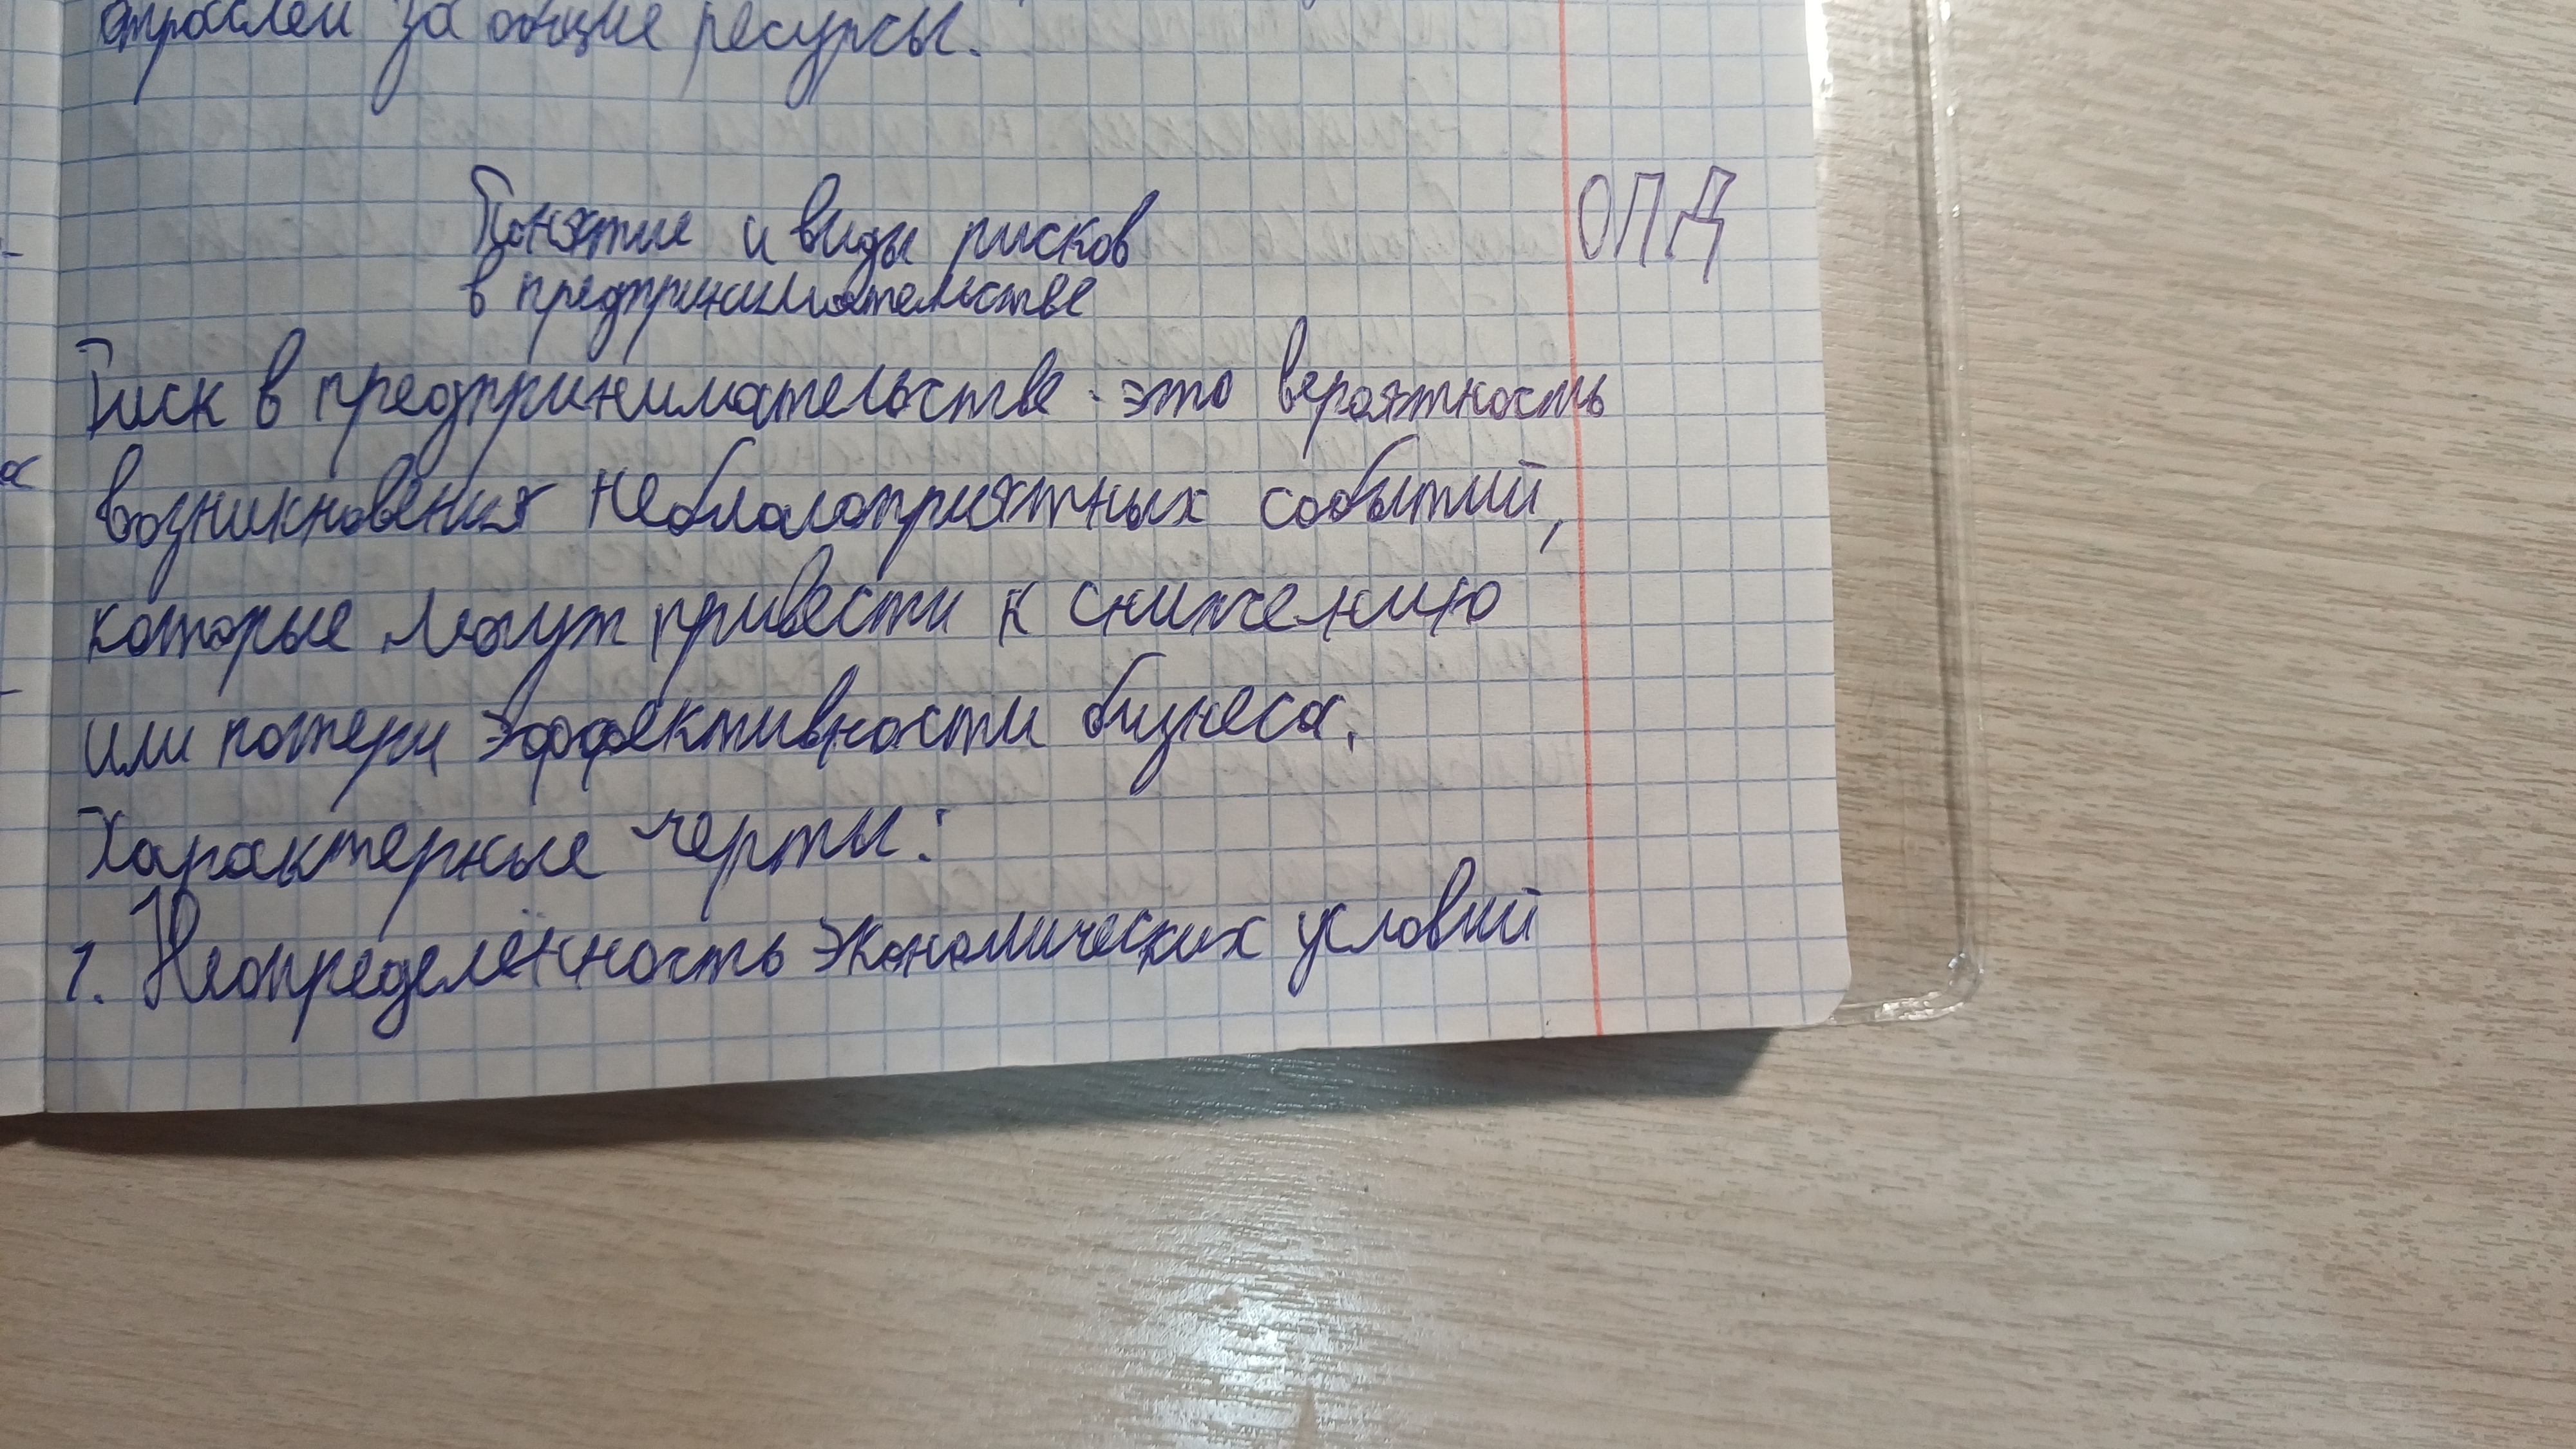 отраслей за общие ресурсы.
Понятие и виды рисков
ОПД
в предпринимательстве
Риск в предпринимательстве - это вероятность
возникновения неблагоприятных событий,
которые могут привести к снижению
или потери эффективности бизнеса.
Характерные черты:
1. Неопределённость экономических условий